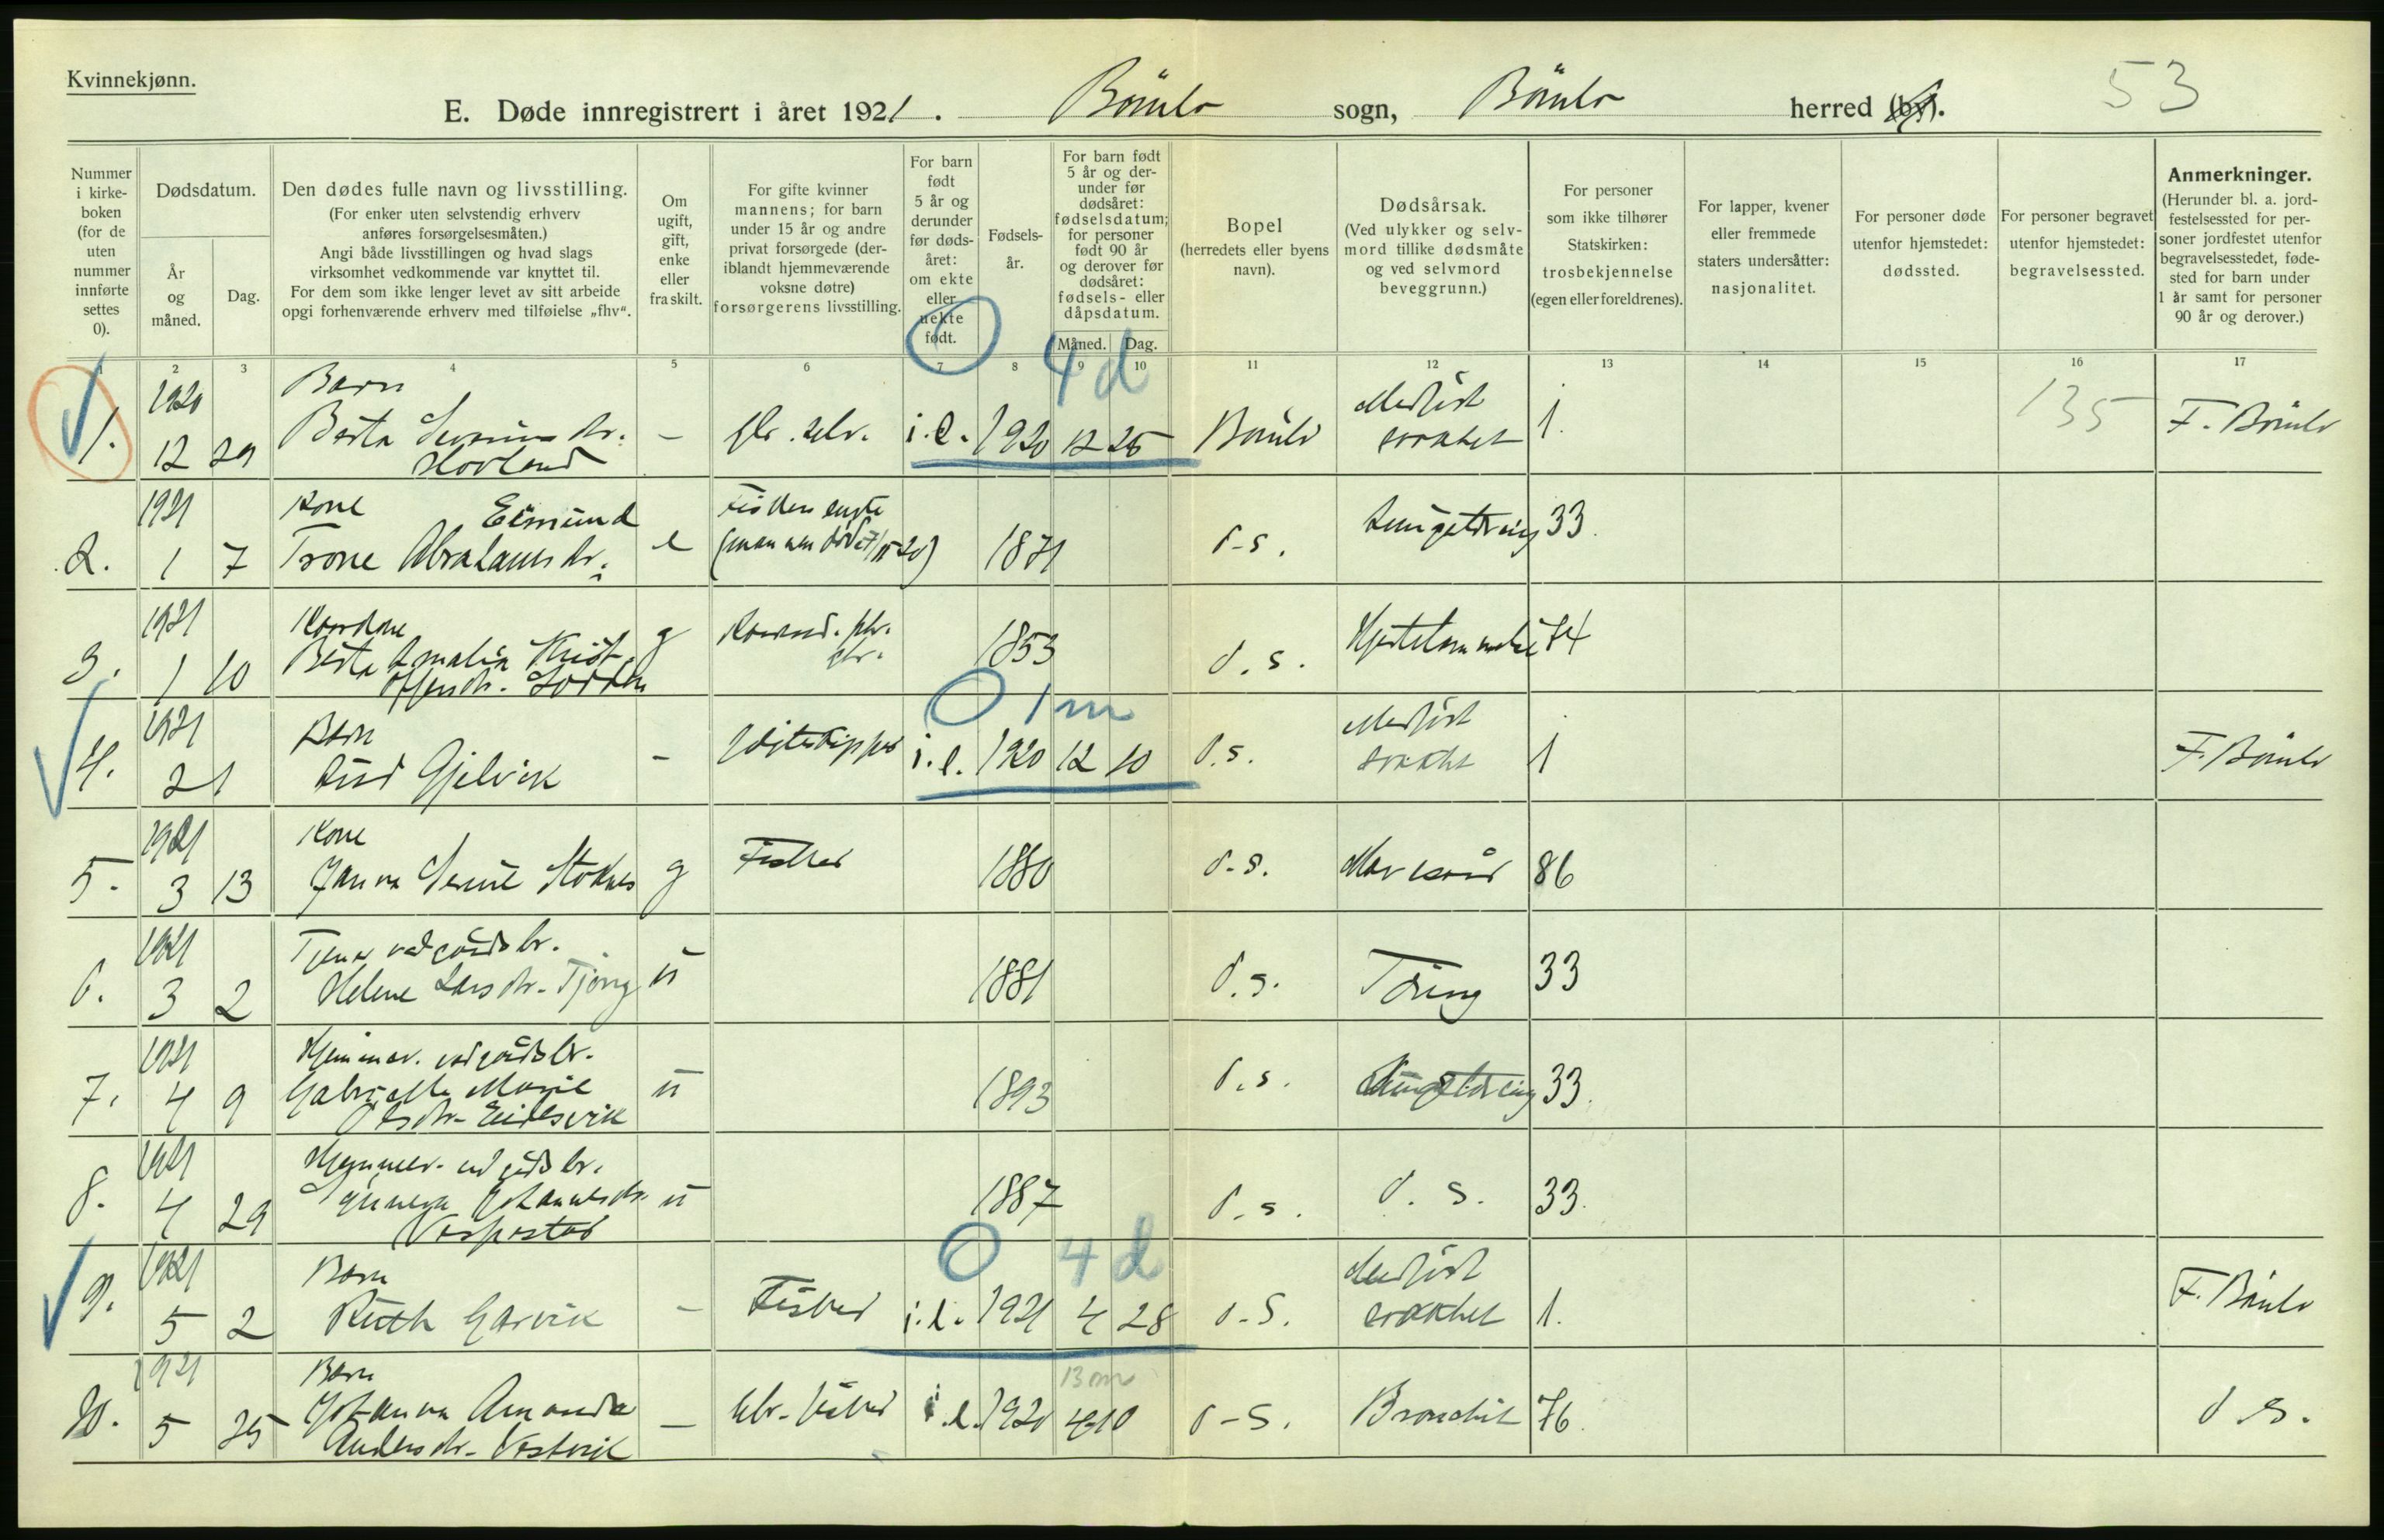 Kvinnekjønn.
53
E. Døde innregistrert i året 1921. Bömlo sogn, Bömlo herred (by).
Nummer i kirkeboken (for de uten nummer innførte settes 0).
Dødsdatum.
År og måned.
Dag.
Den dødes fulle navn og livsstilling.
(For enker uten selvstendig erhverv anføres forsørgelsesmåten.)
Angi både livsstillingen og hvad slags virksomhet vedkommende var knyttet til.
For dem som ikke lenger levet av sitt arbeide opgi forhenværende erhverv med tilføielse „fhv“.
Om ugift, gift, enke eller fraskilt.
For gifte kvinner mannens; for barn under 15 år og andre privat forsørgede (deriblandt hjemmeværende voksne døtre) forsørgerens livsstilling.
For barn født 5 år og derunder før dødsåret: om ekte eller uekte født.
Fødselsår.
For barn født 5 år og derunder før dødsåret: fødselsdatum; for personer født 90 år og derover før dødsåret: fødsels- eller dåpsdatum.
Måned. Dag.
Bopel
(herredets eller byens navn).
Dødsårsak.
(Ved ulykker og selvmord tillike dødsmåte og ved selvmord beveggrunn.)
For personer som ikke tilhører Statskirken: trosbekjennelse (egen eller foreldrenes).
For lapper, kvener eller fremmede staters undersåtter: nasjonalitet.
For personer døde utenfor hjemstedet: dødssted.
For personer begravet utenfor hjemstedet: begravelsessted.
Anmerkninger.
(Herunder bl. a. jordfestelsessted for personer jordfestet utenfor begravelsesstedet, fødested for barn under 1 år samt for personer 90 år og derover.)
1 2 3 4 5 6 7 8 9 10 11 12 13 14 15 16 17
0 4 d
1. 1920 12 29 Barn Berta Severinsdr. Hovland – gbr. selv. i.e. 1920 12 25 Bömlo Medfödt svakhet 1. 135 F. Bömlo
2. 1921 1 7 Kone Trone Abrahamsdr. Eimund e Fiskers enke 1871 d.s. Lungetæring 33.
3. 1921 1 10 Berta Amalia g 1853 d.s. 74
0 1 m
4. 1921 2 1 Barn Gjelvik – Jagteskipper i.e. 1920 12 10 d.s. Medfödt svakhet 1 F. Bömlo
5. 1921 3 13 Kone Janna Serine Stoknes g Fisker 1880 d.s. 86
6. 1921 3 2 Helene Larsdr. ü 1881 d.s. Tæring 33
7. 1921 4 9 Gabrielle Marie Olsdr. Eidesvik ü 1893 d.s. Lungetæring 33.
8. 1921 4 29 Johannesdr. Vespestad ü 1887 d.s. d.s. 33.
0 4 d
9. 1921 5 2 Barn Ruth Gjørvik – Fisker i.e. 1921 4 28 d.s. Medfödt svakhet 1. F. Bömlo
13 m
10. 1921 5 25 Barn Johanna Amanda Andersdr. Vestvik – gbr. fisker i.e. 1920 4 10 d.s. Bronchit 76. d.s.